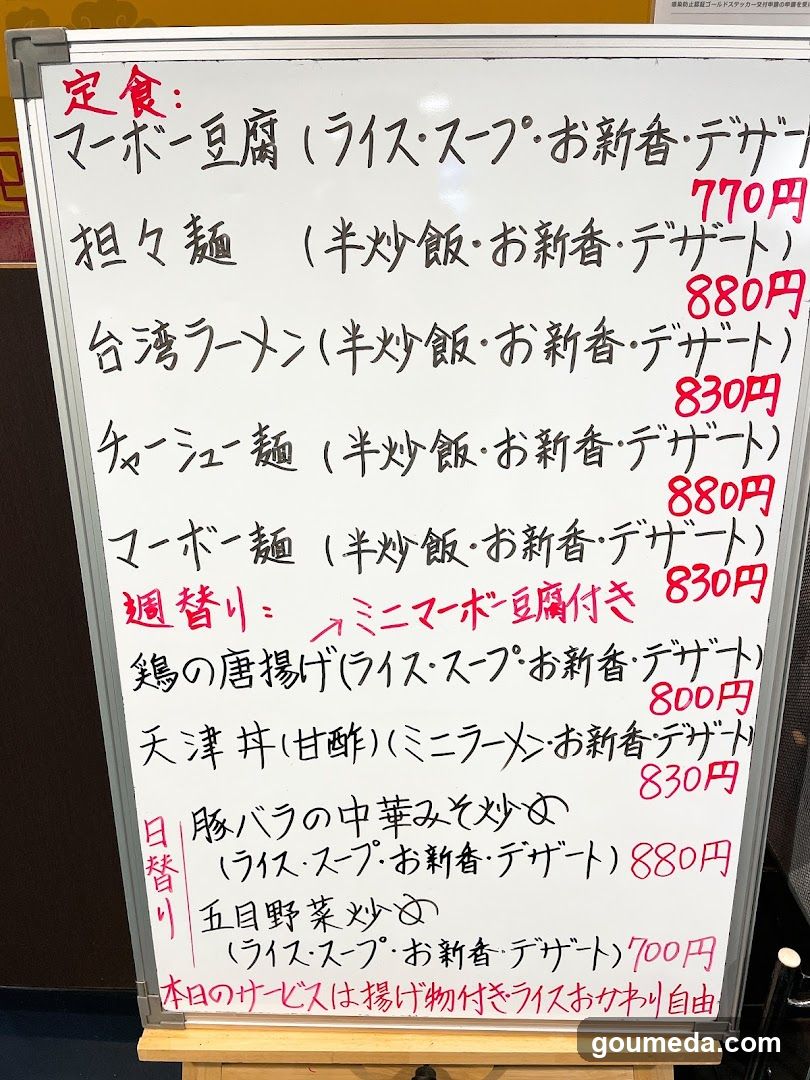 感染防止認証ゴールドステッカー交付申請の申書を受
定食:
マーボー豆腐(ライス・スープ・お新香・デザー
770円
担々麺 (半炒飯・お新香・デザート)
880円
台湾ラーメン(半炒飯・お新香・デザート)
830円
チャーシュー麺(半炒飯・お新香・デザート)
880円
マーボー麺(半炒飯・お新香・デザート)
830円
週替り: ↗ミニマーボー豆腐付き
鶏の唐揚げ(ライス・スープ・お新香・デザート)
800円
天津丼(甘酢)(ミニラーメン・お新香・デザート)
830円
日替り
豚バラの中華みそ炒め
(ライス・スープ・お新香・デザート)880円
五目野菜炒め
(ライス・スープ・お新香・デザート)700円
本日のサービスは揚げ物付き・ライスおかわり自由
goumeda.com